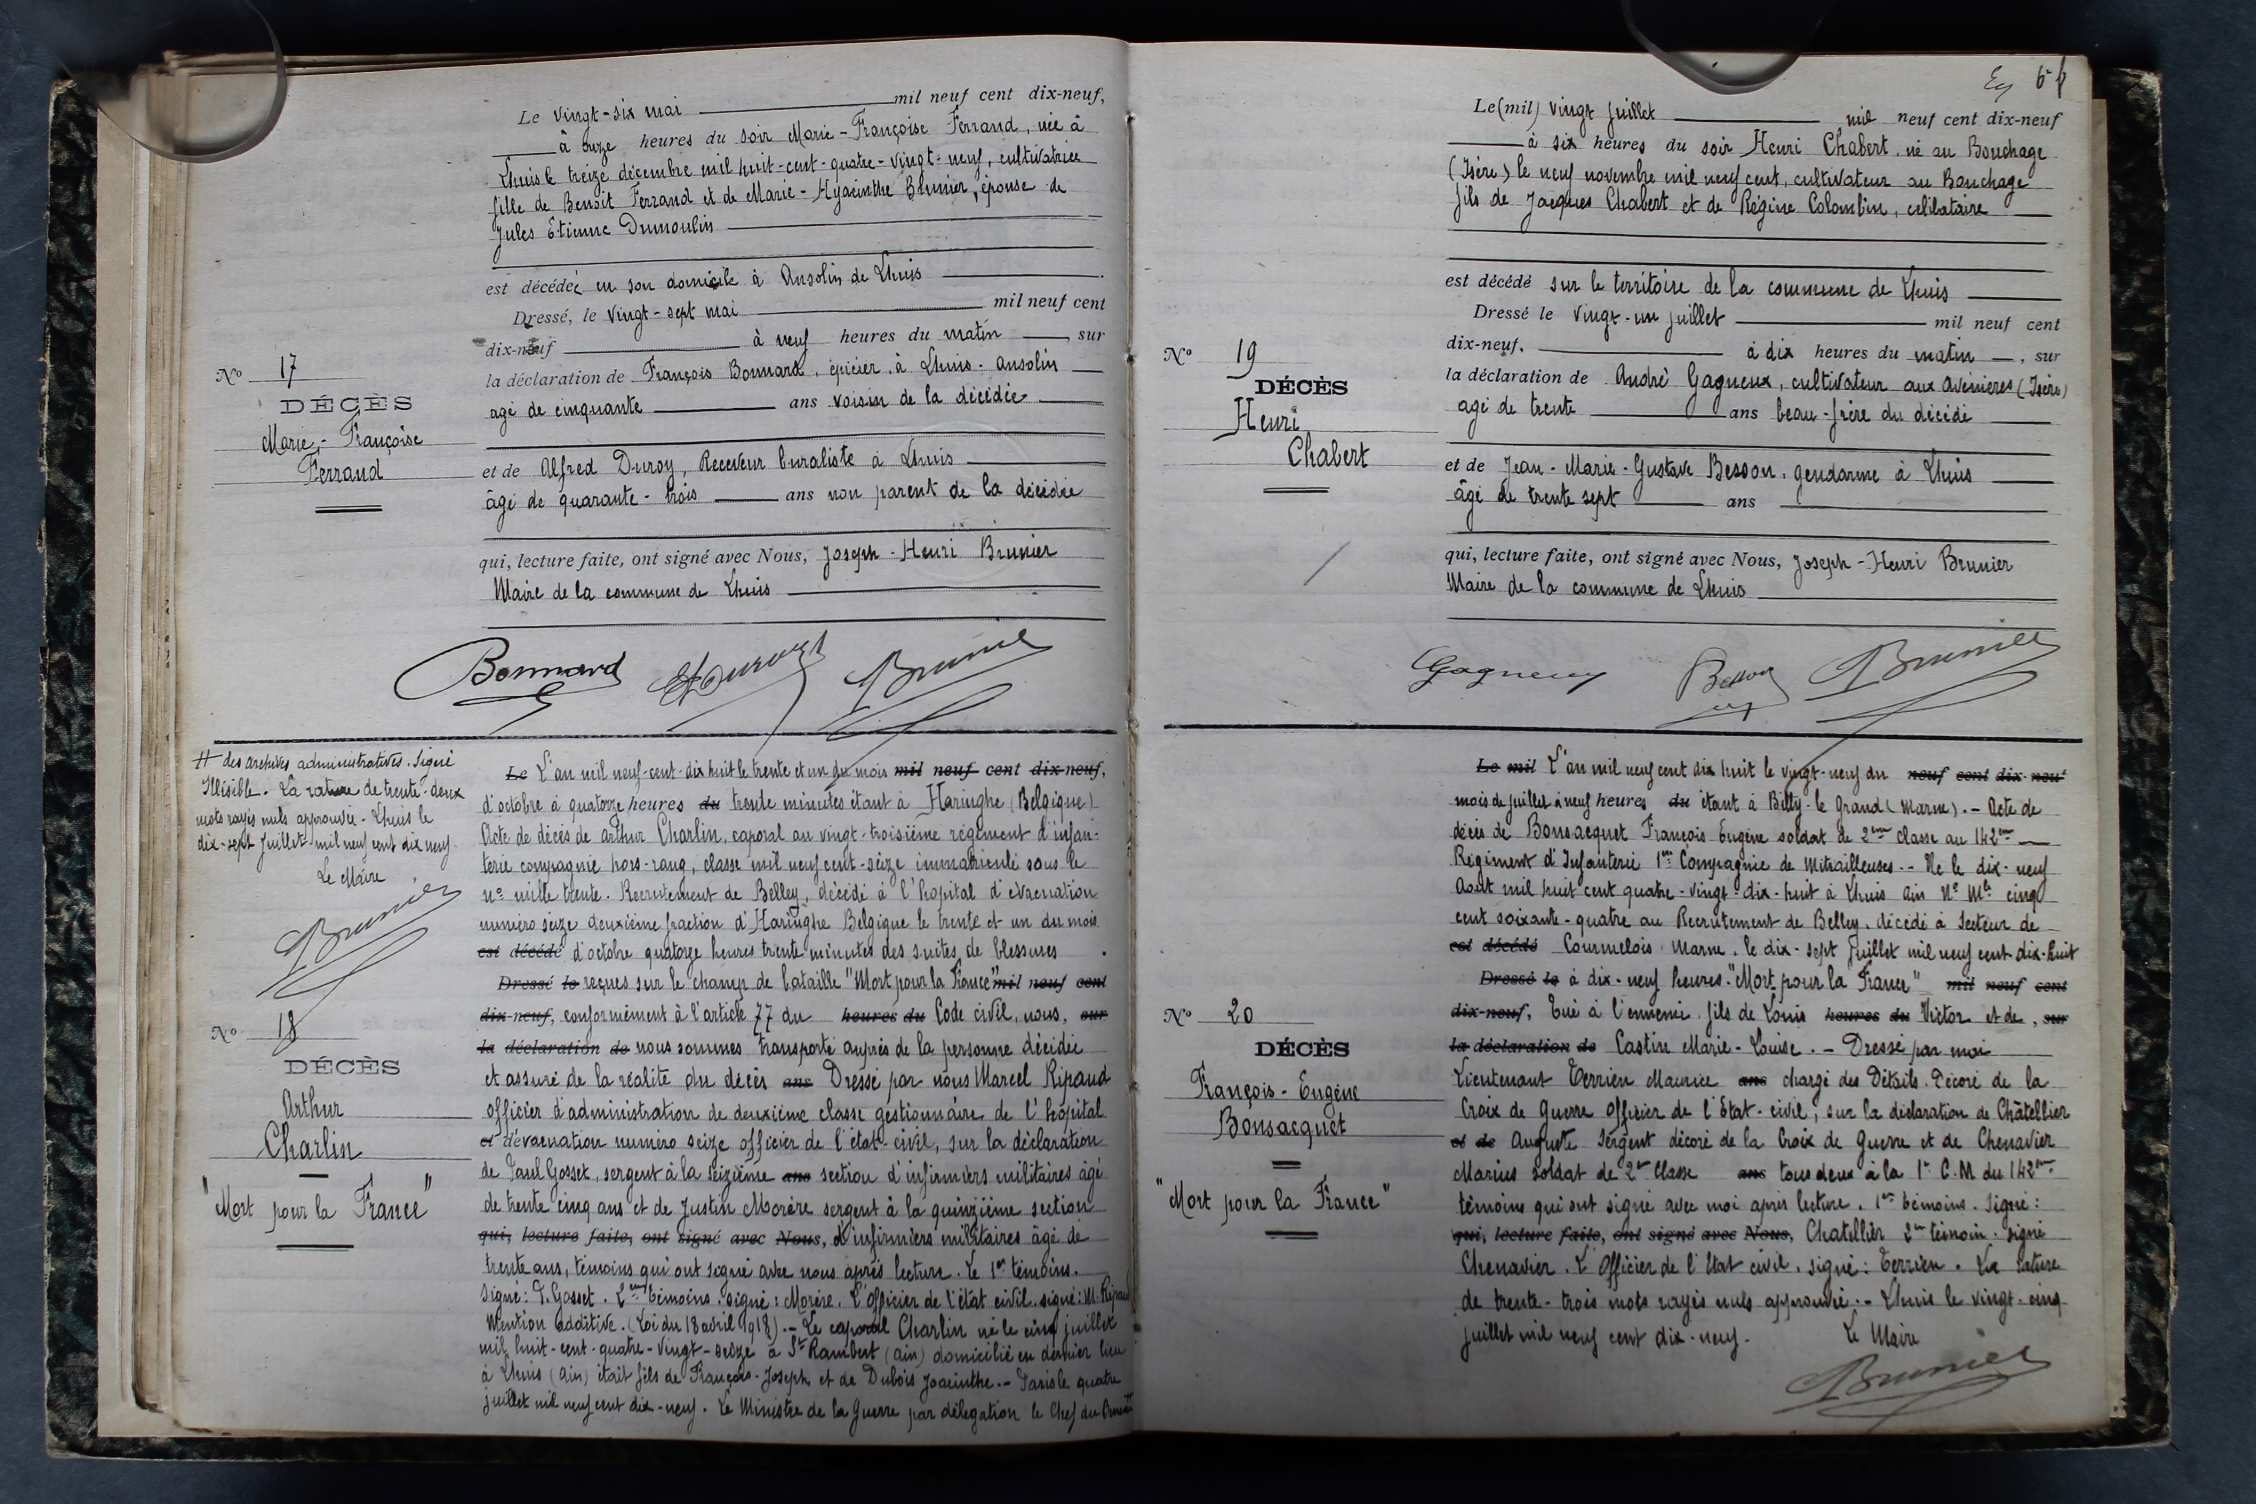 Le vingt-six mai mil neuf cent dix-neuf,
à onze heures du soir Marie-Françoise Ferrand, née à
Lhuis le treize décembre mil huit-cent-quatre-vingt-neuf, cultivatrice
fille de Benoit Ferrand et de Marie-Hyacinthe Brunier, épouse de
Jules Etienne Dumoulin
est décédée en son domicile à Ansolin de Lhuis
Dressé, le vingt-sept mai mil neuf cent
dix-neuf à neuf heures du matin, sur
la déclaration de François Bonnard, épicier, à Lhuis. Ansolin
agé de cinquante ans voisin de la décédée
et de Alfred Duroy, Receveur buraliste à Lhuis
âgé de quarante-trois ans non parent de la décédée
qui, lecture faite, ont signé avec Nous, Joseph-Henri Brunier
Maire de la commune de Lhuis
Nº 17
DÉCÈS
Marie-Françoise
Ferrand
Bonnard Duroy Brunier
# des archives administratives. Signé
Illisible. La rature de trente-deux
mots rayés nuls approuvée. Lhuis le
dix-sept Juillet mil neuf cent dix neuf.
Le Maire
Brunier
Nº 18
DÉCÈS
Arthur
Charlin
"Mort pour la France"
Le L'an mil neuf-cent-dix huit le trente et un du mois mil neuf cent dix-neuf,
d'octobre à quatorze heures du trente minutes étant à Haringhe (Belgique)
Acte de décès de Arthur Charlin, caporal au vingt-troisième régiment d'infan-
terie compagnie hors-rang, classe mil neuf cent-seize immatriculé sous le
nº mille trente. Recrutement de Belley, décédé à l'hopital d'évacuation
numéro seize deuxième fraction d'Haringhe Belgique le trente et un du mois
est décédé d'octobre quatorze heures trente minutes des suites de blessures
Dressé le reçues sur le champ de bataille "Mort pour la France" mil neuf cent
dix-neuf, conformément à l'article 77 du heures du Code civil, nous, sur
la déclaration de nous sommes transporté auprès de la personne décédée
et assuré de la réalité du décès ans Dressé par nous Marcel Ripaud
officier d'administration de deuxième classe gestionnaire de l'hôpital
et d'évacuation numéro seize officier de l'état-civil, sur la déclaration
de Paul Gosset, sergent à la seizième ans section d'infirmiers militaires âgé
de trente cinq ans et de Justin Morère sergent à la quinzième section
qui, lecture faite, ont signé avec Nous, d'infirmiers militaires âgé de
trente ans, témoins qui ont signé avec nous après lecture. Le 1er témoins.
Signé: P. Gosset. 2eme témoins. signé: Morère. L'officier de l'état civil. signé: M. Ripaud
Mention additive. (Loi du 18 avril 1918).- Le caporal Charlin né le cinq juillet
mil huit-cent-quatre-vingt-seize à St Rambert (Ain) domicilié en dernier lieu
à Lhuis (Ain) était fils de François-Joseph et de Dubois Joacinthe.- Paris le quatre
juillet mil neuf cent dix-neuf. Le Ministre de la Guerre par délégation le Chef du
Le (mil) vingt juillet mil neuf cent dix-neuf
à six heures du soir Henri Chabert, né au Bouchage
(Isère) le neuf novembre mil neuf cent, cultivateur au Bouchage
fils de Jacques Chabert et de Régine Colombin, célibataire
est décédé sur le territoire de la commune de Lhuis
Dressé le vingt-un juillet mil neuf cent
dix-neuf. à dix heures du matin, sur
la déclaration de André Gagneux, cultivateur aux Avenières (Isère)
agé de trente ans beau-frère du décédé
et de Jean-Marie-Gustave Besson, gendarme à Lhuis
âgé de trente sept ans
qui, lecture faite, ont signé avec Nous, Joseph-Henri Brunier
Maire de la commune de Lhuis
Nº 19
DÉCÈS
Henri
Chabert
Gagneux Besson Brunier
Le mil L'an mil neuf cent dix huit le vingt-neuf du neuf cent dix-neuf
mois de juillet à neuf heures du étant à Billy-le Grand (Marne).- Acte de
décès de Bonsacquet François Eugène soldat de 2eme classe au 142eme
Régiment d'Infanterie 1ere Compagnie de Mitrailleuses.- Né le dix-neuf
Août mil huit cent quatre-vingt-dix-huit à Lhuis Ain Nº Mle cinq
cent soixante-quatre au Recrutement de Belley, décédé à Secteur de
est décédé Courmelois Marne, le dix-sept Juillet mil neuf cent dix-huit
Dressé le à dix-neuf heures. "Mort pour la France" mil neuf cent
dix-neuf, Tué à l'ennemi fils de Louis heures du Victor et de, sur
la déclaration de Castin Marie-Louise.- Dressé par moi
Lieutenant Terrien Maurice ans chargé des Détails. Décoré de la
Croix de Guerre Officier de l'Etat-civil, sur la déclaration de Châtellier
et de Auguste Sergent décoré de la Croix de Guerre et de Chenavier
Marius soldat de 2eme Classe ans tous deux à la 1e C.M du 142eme
témoins qui ont signé avec moi après lecture. 1er témoins. Signé:
qui, lecture faite, ont signé avec Nous, Chatellier 2em témoin. signé
Chenavier. L'Officier de l'Etat civil, signé: Terrien. La rature
de trente-trois mots rayés nuls approuvée.- Lhuis le vingt-cinq
juillet mil neuf cent dix-neuf. Le Maire
Brunier
Nº 20
DÉCÈS
François-Eugène
Bonsacquet
"Mort pour la France"